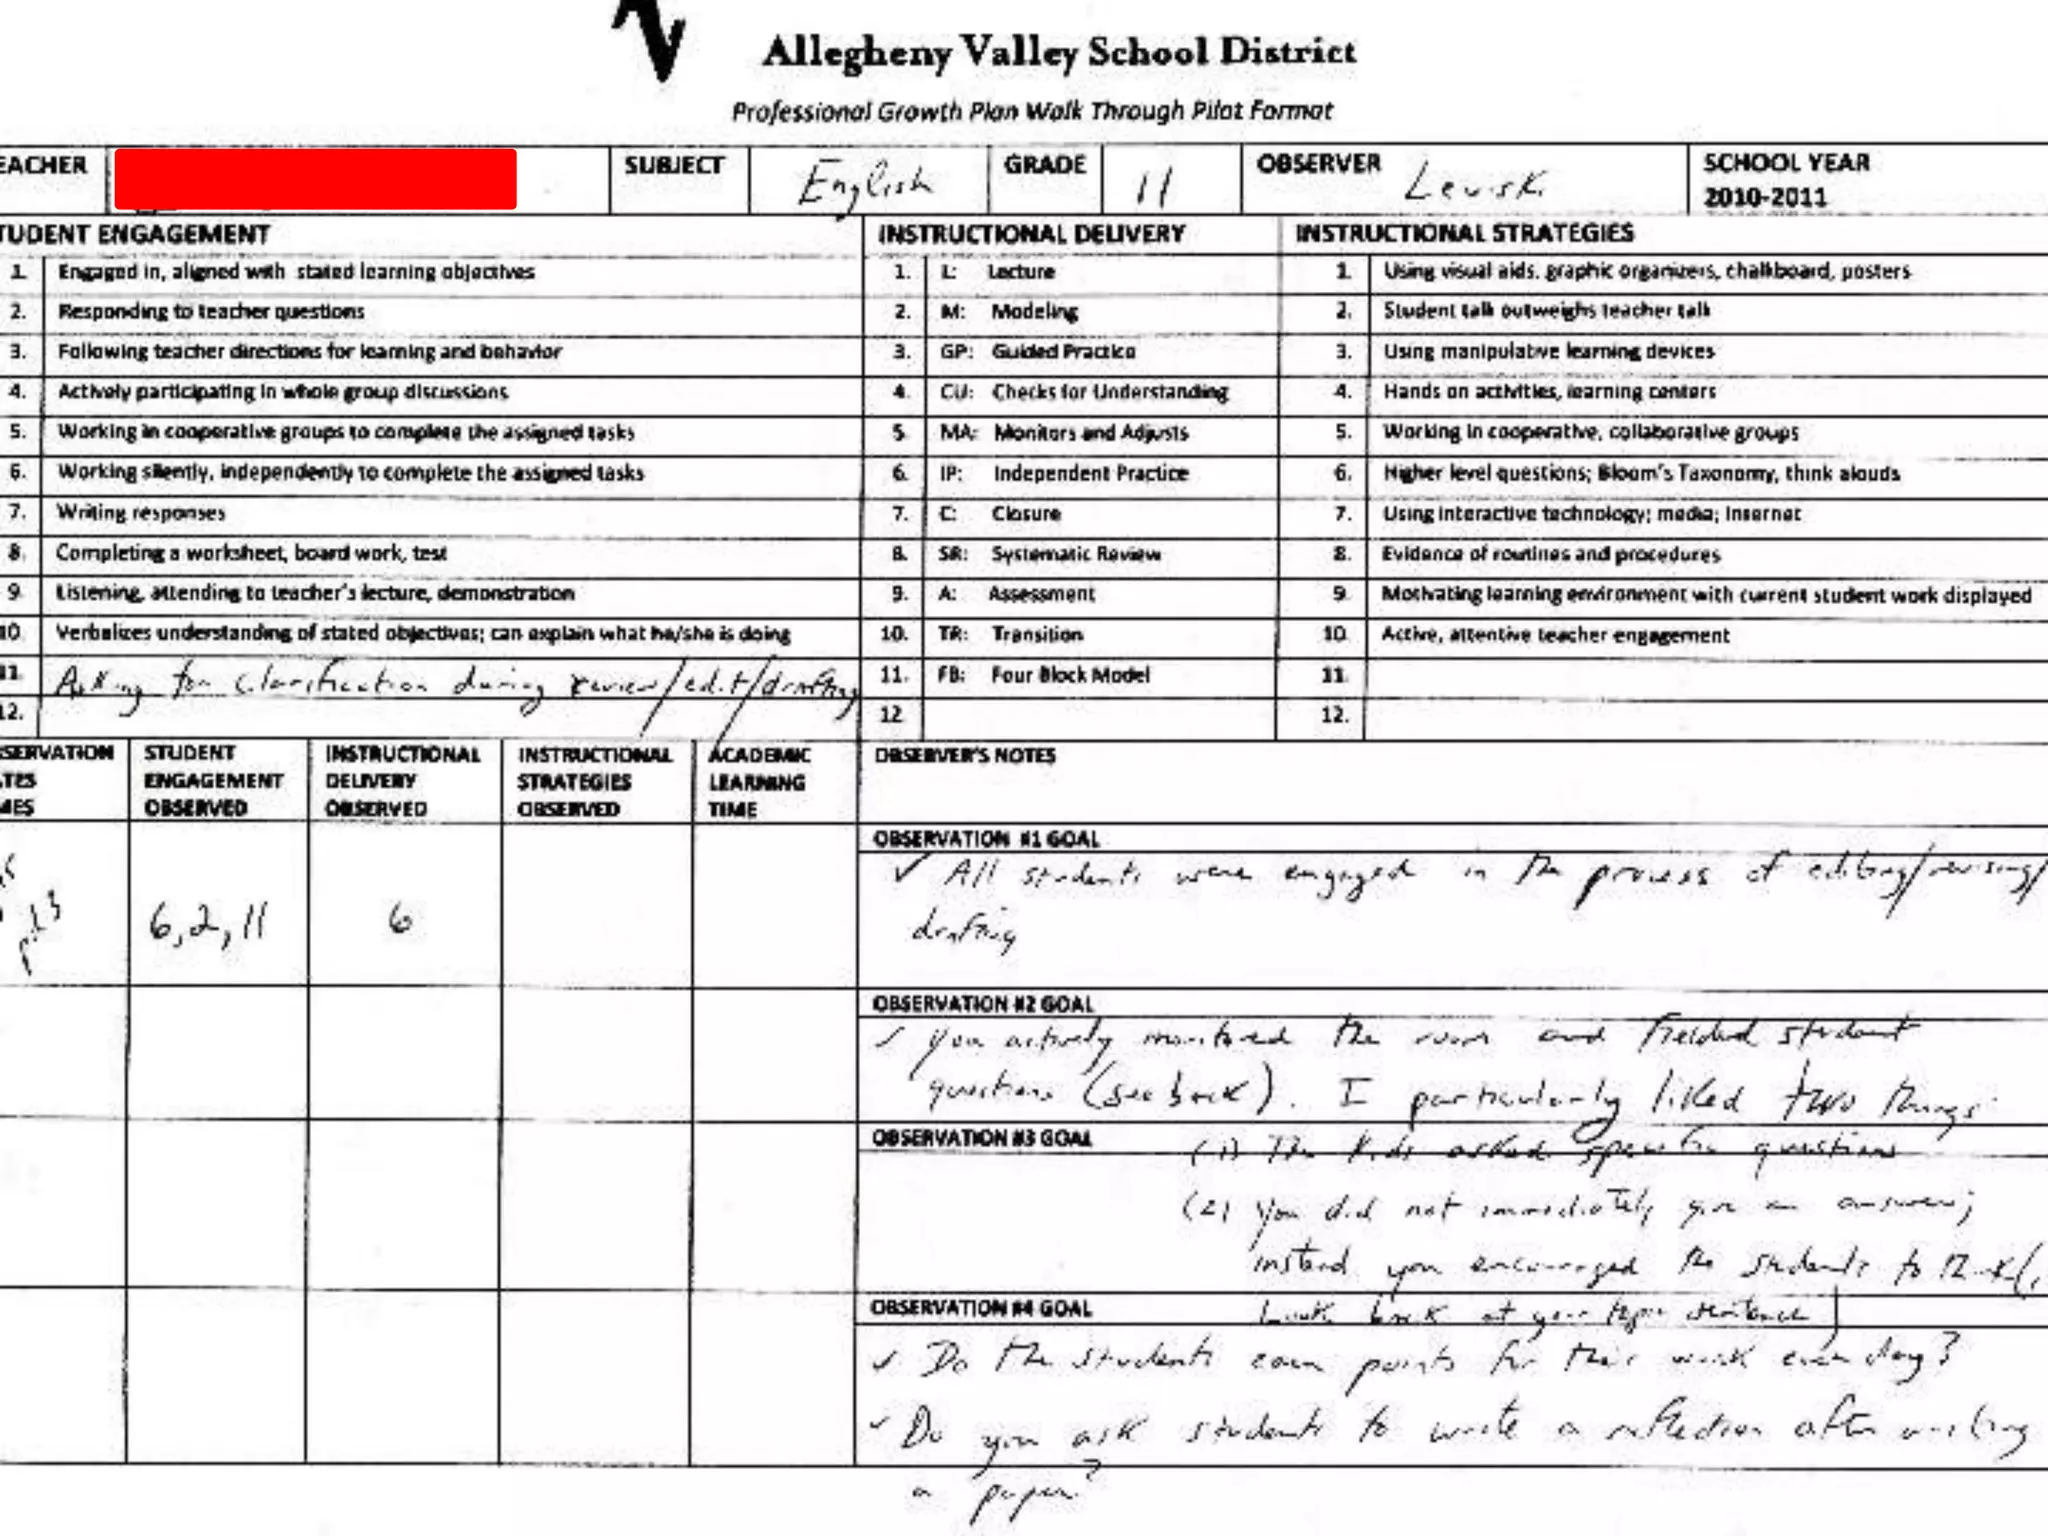 AV
Allegheny Valley School District
Professional Growth Plan Walk Through Pilot Format
EACHER SUBJECT English GRADE 11 OBSERVER SCHOOL YEAR
2010-2011
TUDENT ENGAGEMENT INSTRUCTIONAL DELIVERY INSTRUCTIONAL STRATEGIES
1. Engaged in, aligned with stated learning objectives 1. L: Lecture 1. Using visual aids, graphic organizers, chalkboard, posters
2. Responding to teacher questions 2. M: Modeling 2. Student talk outweighs teacher talk
3. Following teacher directions for learning and behavior 3. GP: Guided Practice 3. Using manipulative learning devices
4. Actively participating in whole group discussions 4. CU: Checks for Understanding 4. Hands on activities, learning centers
5. Working in cooperative groups to complete the assigned tasks 5. MA: Monitors and Adjusts 5. Working in cooperative, collaborative groups
6. Working silently, independently to complete the assigned tasks 6. IP: Independent Practice 6. Higher level questions; Bloom's Taxonomy, think alouds
7. Writing responses 7. C: Closure 7. Using interactive technology; media; Internet
8. Completing a worksheet, board work, test 8. SR: Systematic Review 8. Evidence of routines and procedures
9. Listening, attending to teacher's lecture, demonstration 9. A: Assessment 9. Motivating learning environment with current student work displayed
10. Verbalizes understanding of stated objectives; can explain what he/she is doing 10. TR: Transition 10. Active, attentive teacher engagement
11. Asking for clarification during review/edit/drafting 11. FB: Four Block Model 11.
12. 12 12.
SERVATION STUDENT INSTRUCTIONAL INSTRUCTIONAL ACADEMIC OBSERVER'S NOTES
TES ENGAGEMENT DELIVERY STRATEGIES LEARNING
MES OBSERVED OBSERVED OBSERVED TIME
OBSERVATION #1 GOAL
✓ All students were engaged in the process of editing/revising/
6,2,11 6 drafting
OBSERVATION #2 GOAL
✓ You actively monitored the room and fielded student
questions (see back). I particularly liked two things:
OBSERVATION #3 GOAL (1) The kids asked specific questions
(2) You did not immediately give an answer;
instead you encouraged the students to think (
OBSERVATION #4 GOAL Look back at your topic sentence)
✓ Do the students earn points for their work each day?
✓ Do you ask students to write a reflection after writing
a paper?